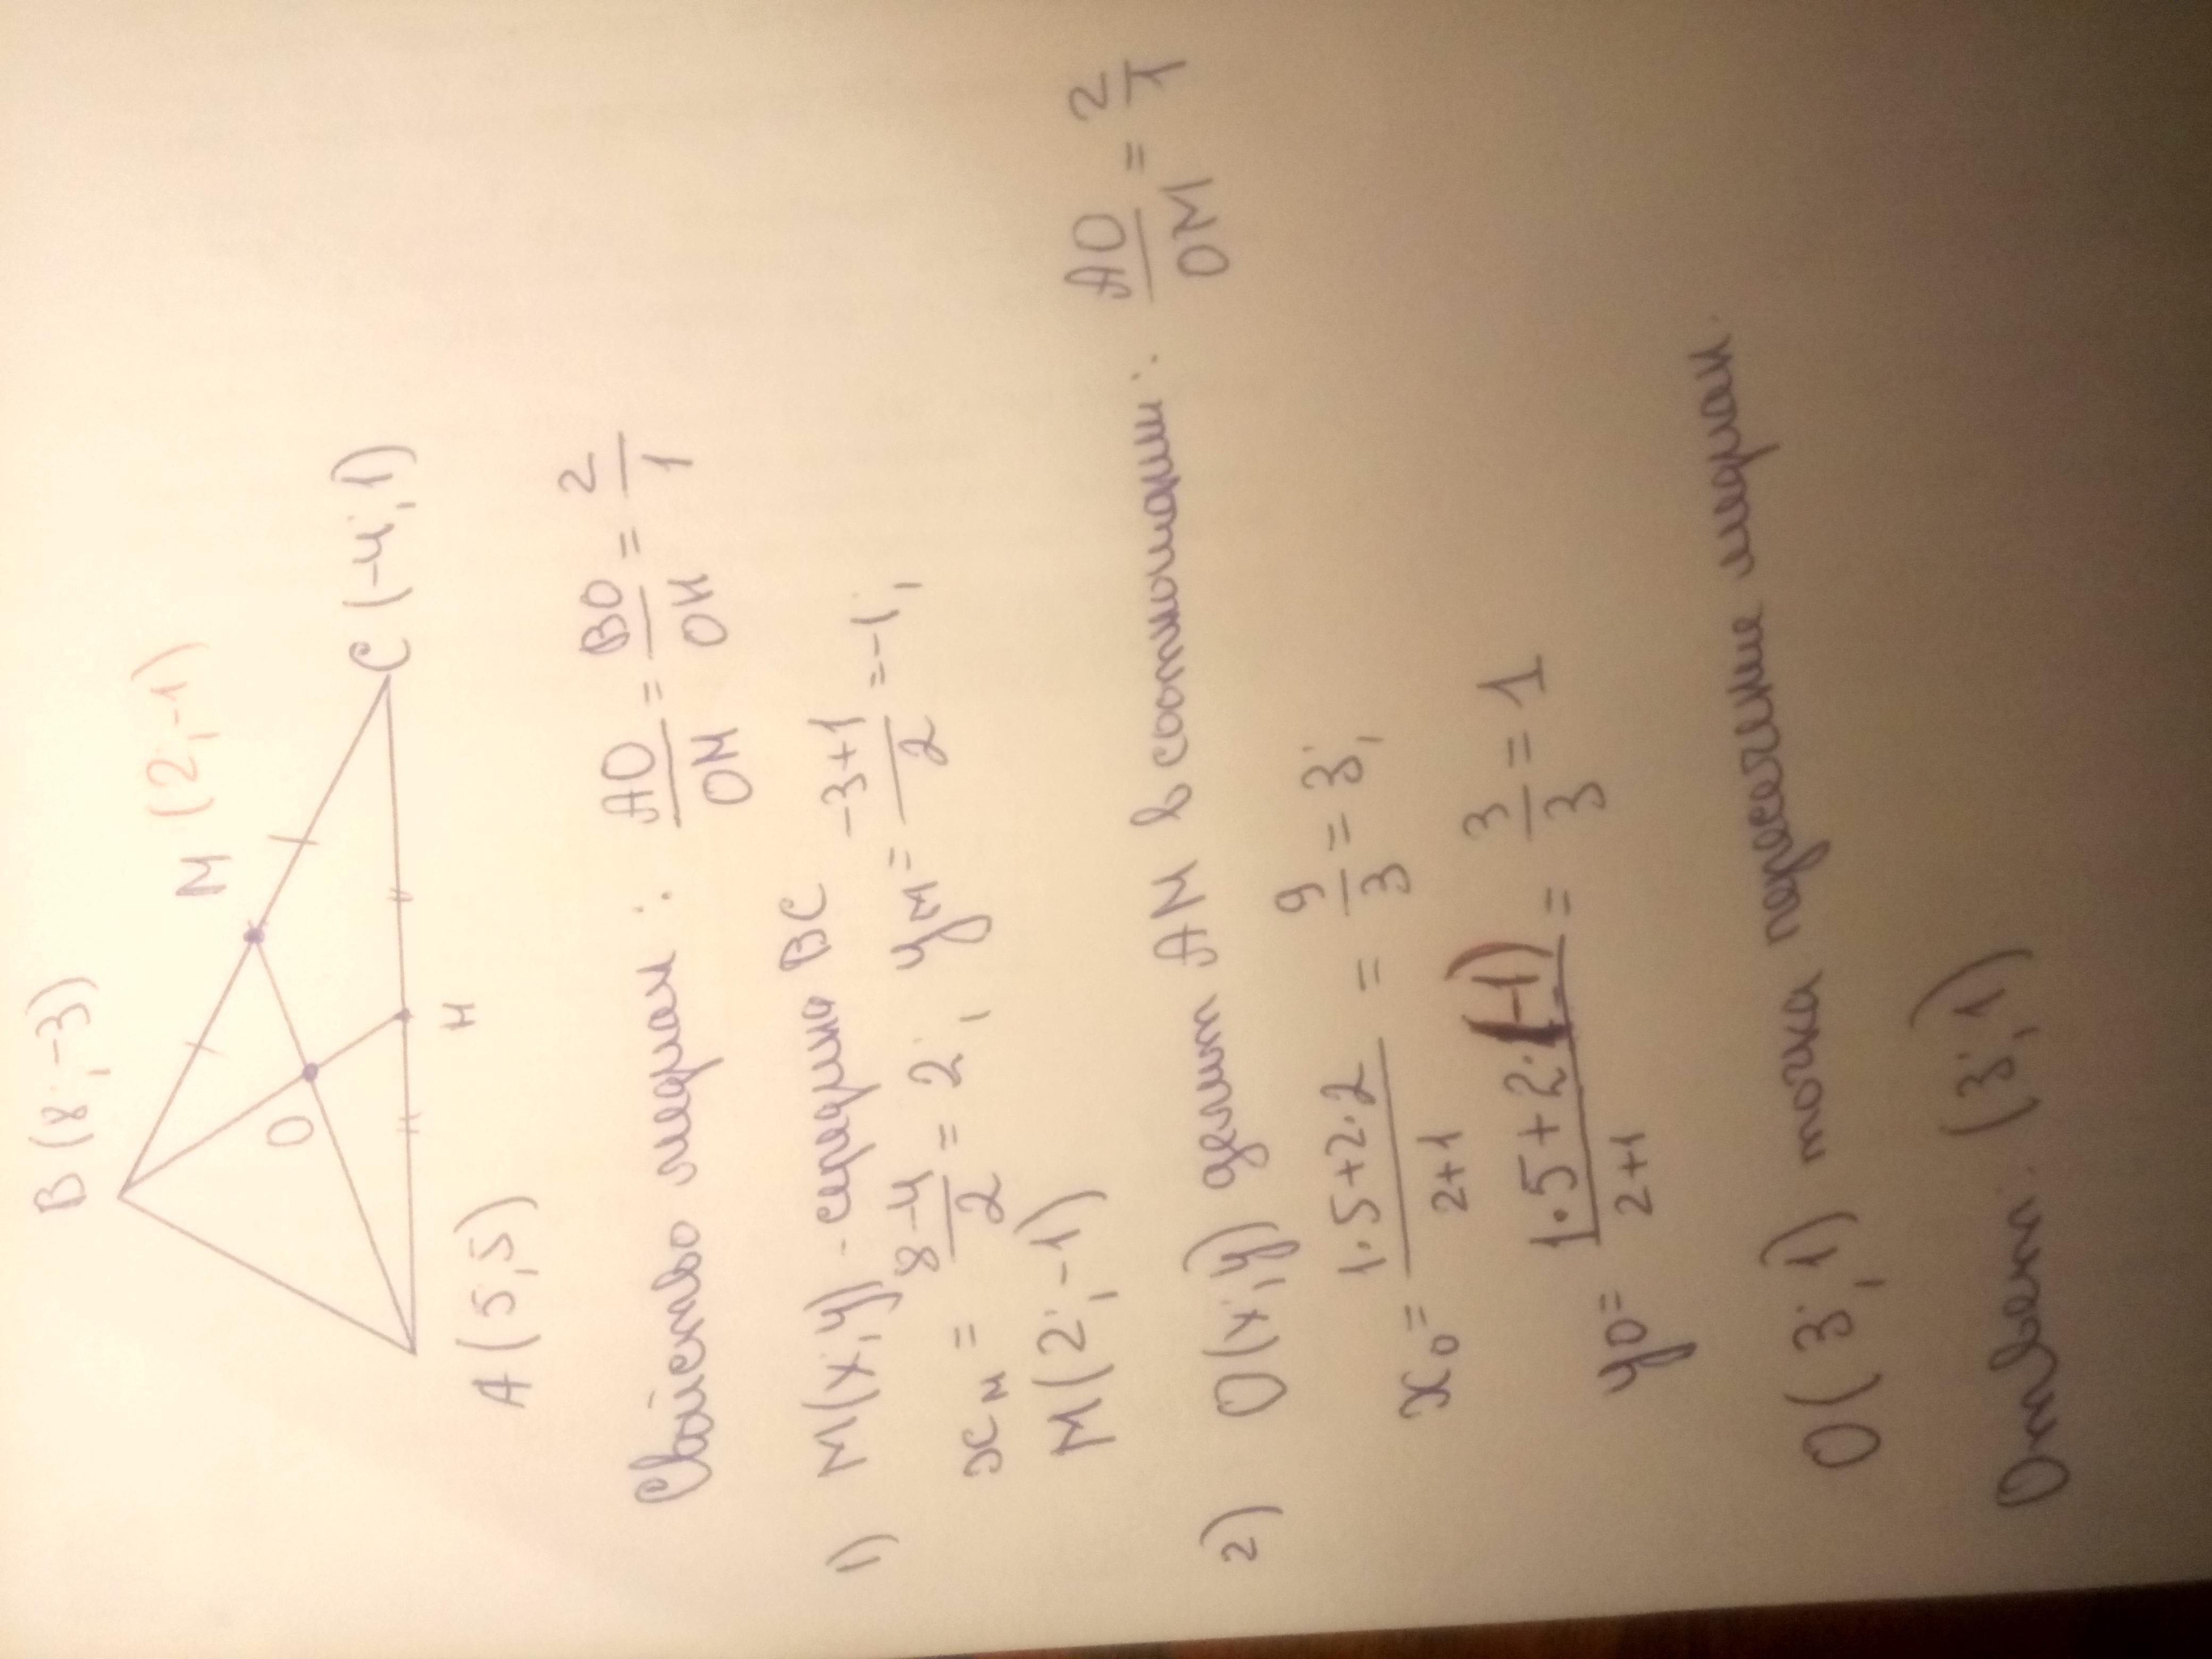 B (8; -3)
M (2; -1)
O
C (-4; 1)
H
A (5; 5)
Свойство медиан: AO/OM = BO/OH = 2/1
1) M(x; y) - середина BC
xм = (8-4)/2 = 2; yм = (-3+1)/2 = -1;
M(2; -1)
2) O(x; y) делит AM в соотношении: AO/OM = 2/1
x₀ = (1·5+2·2)/(2+1) = 9/3 = 3;
y₀ = (1·5+2·(-1))/(2+1) = 3/3 = 1
O(3; 1) точка пересечение медиан.
Ответ: (3; 1)